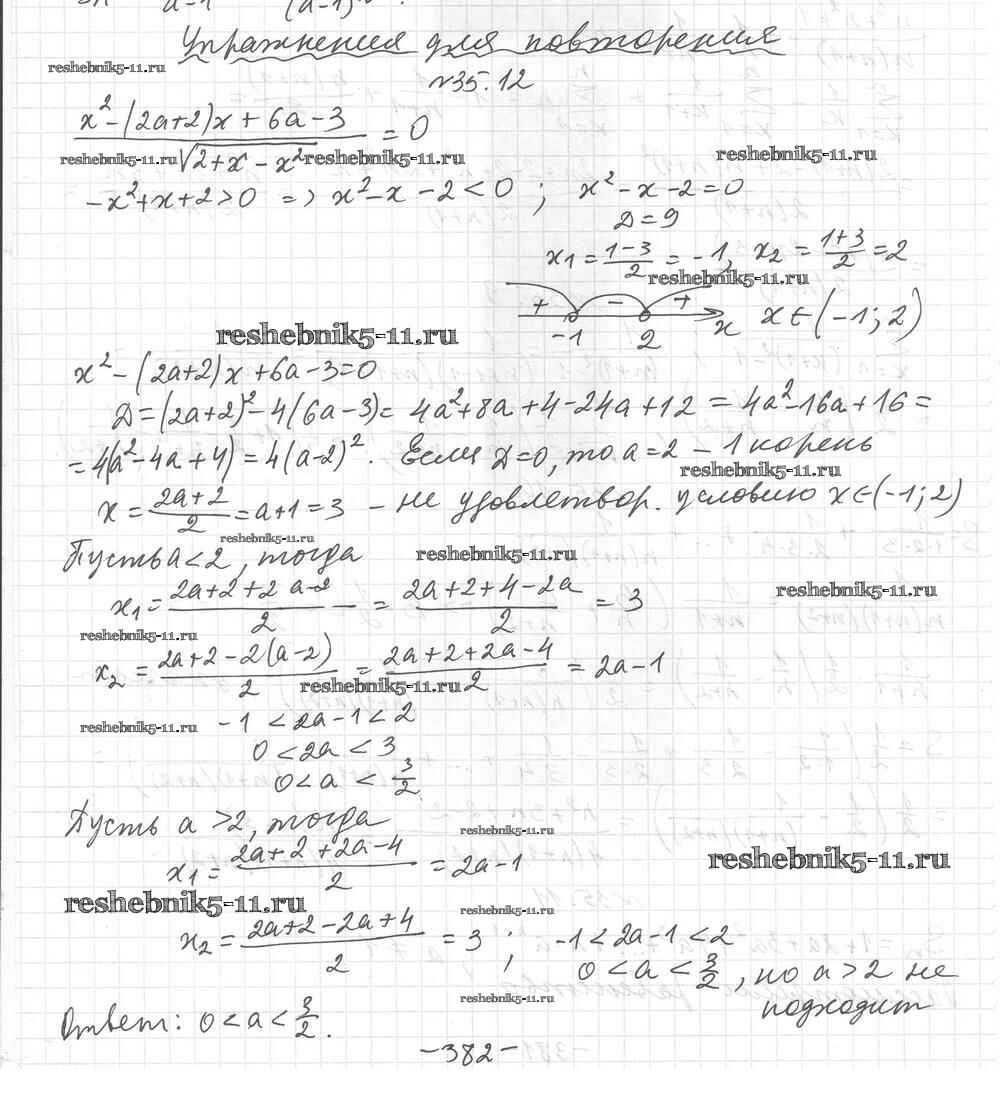 Упражнения для повторения
reshebnik5-11.ru
№35.12
x² - (2a+2)x + 6a - 3 / √(2+x-x²) = 0
reshebnik5-11.ru reshebnik5-11.ru reshebnik5-11.ru
-x²+x+2>0 => x²-x-2<0 ; x²-x-2=0
Д=9
x₁ = (1-3)/2 = -1, x₂ = (1+3)/2 = 2
reshebnik5-11.ru
+ - + x x∈(-1; 2)
-1 2
reshebnik5-11.ru
x² - (2a+2)x + 6a - 3 = 0
Д = (2a+2)² - 4(6a-3) = 4a²+8a+4-24a+12 = 4a²-16a+16 =
= 4(a²-4a+4) = 4(a-2)². Если Д=0, то a=2 – 1 корень
reshebnik5-11.ru
x = (2a+2)/2 = a+1 = 3 – не удовлетвор. условию x∈(-1; 2)
reshebnik5-11.ru
Пусть a<2, тогда
reshebnik5-11.ru
x₁ = (2a+2+2 a-2)/2 – = (2a+2+4-2a)/2 = 3
reshebnik5-11.ru
reshebnik5-11.ru
x₂ = (2a+2-2(a-2))/2 = (2a+2+2a-4)/2 = 2a-1
reshebnik5-11.ru
reshebnik5-11.ru
-1 < 2a-1 < 2
0 < 2a < 3
0 < a < 3/2
Пусть a>2, тогда
reshebnik5-11.ru
x₁ = (2a+2+2a-4)/2 = 2a-1
reshebnik5-11.ru
reshebnik5-11.ru
reshebnik5-11.ru
x₂ = (2a+2-2a+4)/2 = 3 ; -1<2a-1<2
0<a<3/2, но a>2 не
подходит
reshebnik5-11.ru
Ответ: 0<a<3/2.
-382-